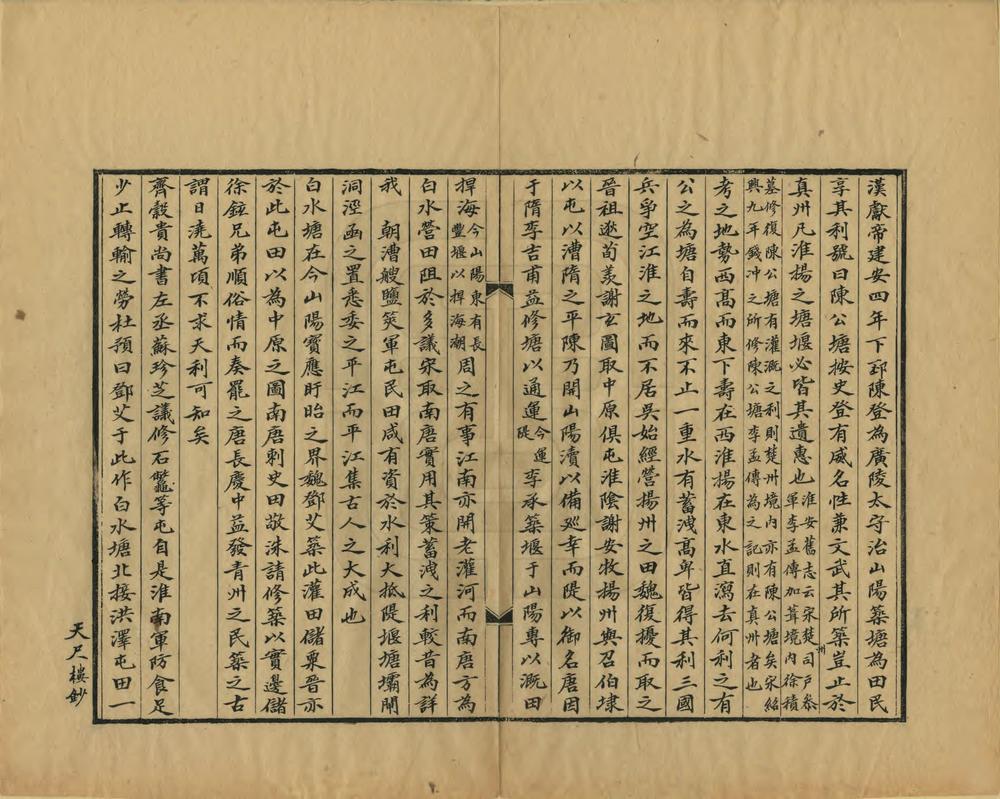 漢獻帝建安四年下邳陳登為廣陵太守治山陽築塘為田民
享其利號曰陳公塘按史登有威名性兼文武其所築豈止於
真州凡淮揚之塘堰必皆其遺惠也淮安舊志云宋楚州司戶叅
軍李孟傳加葺境內徐積
墓修復陳公塘有灌溉之利則楚州境內亦有陳公塘矣宋紹
興九年錢冲之所修陳公塘李孟傳為之記則在真州者也
考之地勢西高而東下壽在西淮揚在東水直瀉去何利之有
公之為塘自壽而來不止一重水有蓄洩高卑皆得其利三國
兵爭空江淮之地而不居吳始經營揚州之田魏復擾而取之
晉祖逖荀羨謝玄圖取中原俱屯淮陰謝安牧揚州與召伯埭
以屯以漕隋之平陳乃開山陽瀆以備廵幸而隄以御名唐因
于隋李吉甫益修塘以通運今運
隄李承築堰于山陽專以溉田
捍海今山陽東有長
豐堰以捍海潮周之有事江南亦開老灌河而南唐方為
白水營田阻於多議宋取南唐實用其策蓄洩之利較昔為詳
我 朝漕艘鹽筴軍屯民田咸有資於水利大抵隄堰塘壩閘
洞涇函之置悉委之平江而平江集古人之大成也
白水塘在今山陽寳應盱眙之界魏鄧艾築此灌田儲粟晉亦
於此屯田以為中原之圖南唐刺史田敬洙請修築以實邊儲
徐鉉兄弟順俗情而奏罷之唐長慶中益發青州之民築之古
謂日澆萬頃不求天利可知矣
齊穀貴尚書左丞蘇珍芝議修石鼈等屯自是淮南軍防食足
少止轉輸之勞杜預曰鄧艾于此作白水塘北接洪澤屯田一
天尺樓鈔